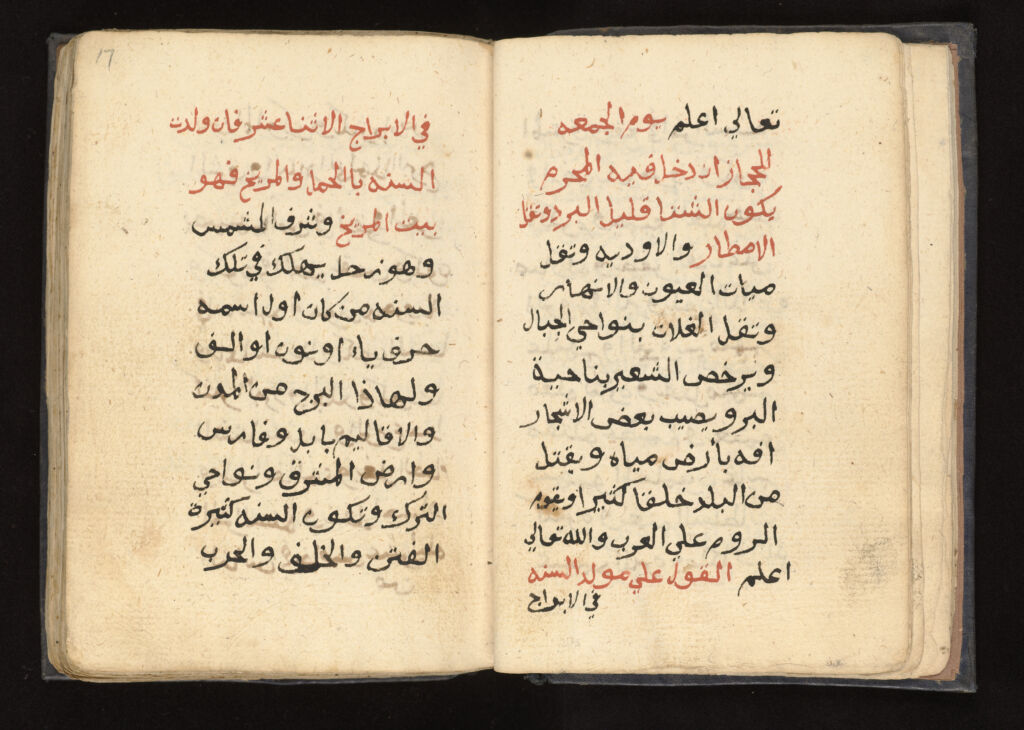 تعالي اعلم يوم الجمعه
للحجاز ان دخل فيه المحرم
يكون الشتا قليل البرد وتقل
الامطار والاوديه وتقل
ميات العيون والانهار
وتقل الغلات بنواحي الجبال
ويرخص الشعير بناحية
البر ويصيب بعض الاشجار
افه بأرض مياه ويقتل
من البلد خلقا كثيرا ويقوم
الروم علي العرب والله تعالي
اعلم القول علي مولد السنه
في الابراج
17
في الابراج الاثنا عشر فان ولدت
السنه بالحمل والمريخ فهو
بيت المريخ وشرف الشمس
وهو زحل يهلك في تلك
السنه من كان اول اسمه
حرف ياء او نون او الف
ولهاذا البرج من المدن
والاقاليم بابل وفارس
وارض المشرق ونواحي
الترك وتكون السنه كثيرة
الفتن والخلف والحرب